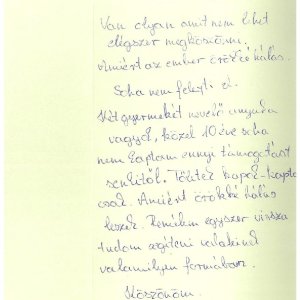 Van olyan amit nem lehet
elégszer megköszönni,
amiért az ember örökké hálás.
Soha nem felejti el.
Két gyermekét nevelő anyuka
vagyok, közel 10 éve soha
nem kaptam ennyi támogatást
senkitől. Töletek kapok - kapta
család. Amiért örökké hálás
leszek. Remélem egyszer vissza
tudom segíteni valakinek
valamilyen formában.
Köszönöm.